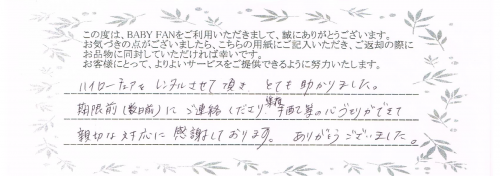 この度は、BABY FANをご利用いただきまして、誠にありがとうございます。
お気づきの点がございましたら、こちらの用紙にご記入いただき、ご返却の際に
お品物に同封していただければ幸いです。
お客様にとって、よりよいサービスをご提供できるように努力いたします。
ハイローチェアを レンタルさせて頂き とても助かりました。
期限前(数日前)に ご連絡くださり、 準備の心づもりができて
親切な対応に 感謝しております。 ありがとうございました。